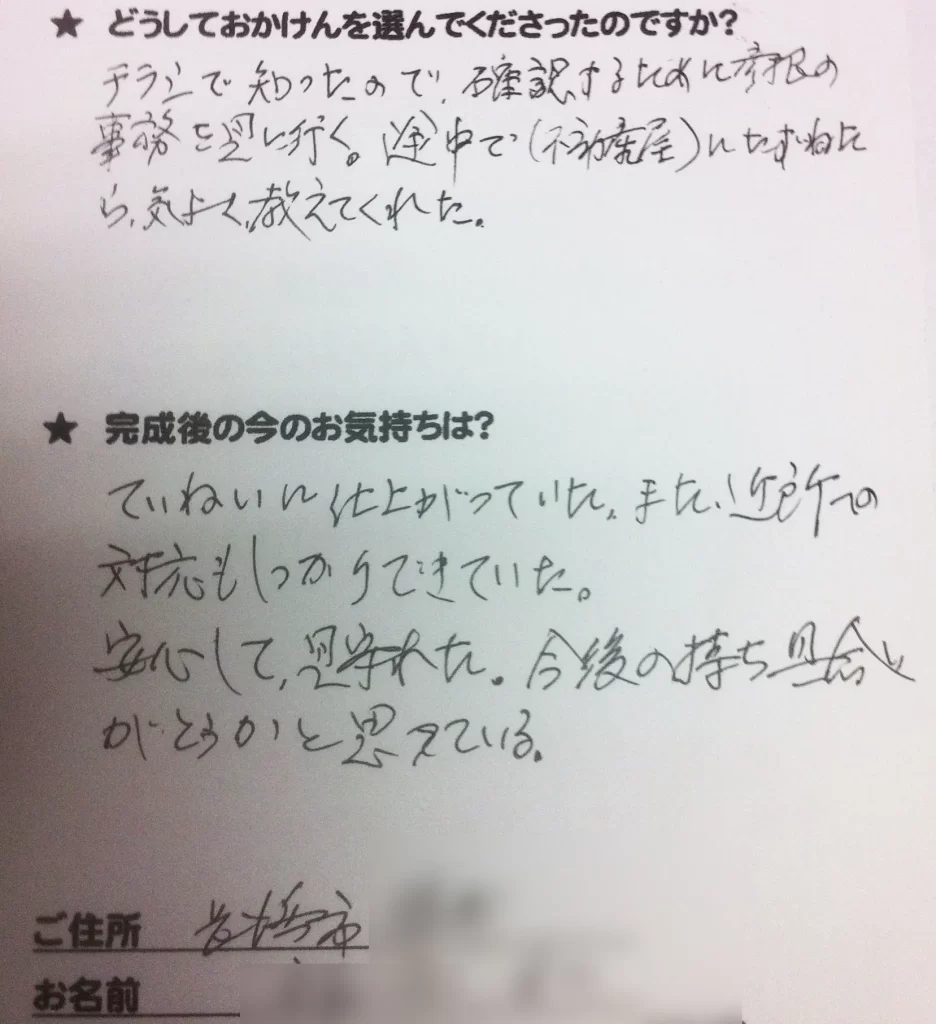 ★ どうしておかけんを選んでくださったのですか?
チラシで知ったので、確認するために彦根の
事務を見に行く。途中で(不動産屋)にたずねた
ら、気よく、教えてくれた。
★ 完成後の今のお気持ちは?
ていねいに仕上がっていた。また、近所への
対応もしっかりできていた。
安心して、見守れた。今後の持ち具合
がどうかと思えている。
ご住所 市
お名前